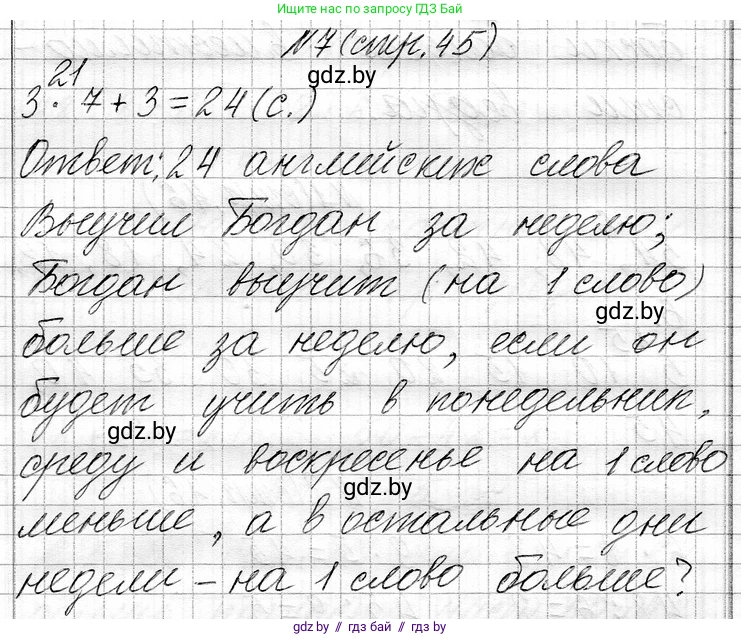 Ищите нас в поисковике по запросу ГДЗ Бай
№7(стр.45)
gdz.by
21
3 · 7 + 3 = 24 (с.)
Ответ: 24 английских слова
Выучил Богдан за неделю;
Богдан выучит (на 1 слово)
gdz.by
больше за неделю, если он
будет учить в понедельник,
gdz.by
среду и воскресенье на 1 слово
gdz.by
меньше, а в остальные дни
недели – на 1 слово больше?
gdz.by // гдз бай // gdz.by // гдз by